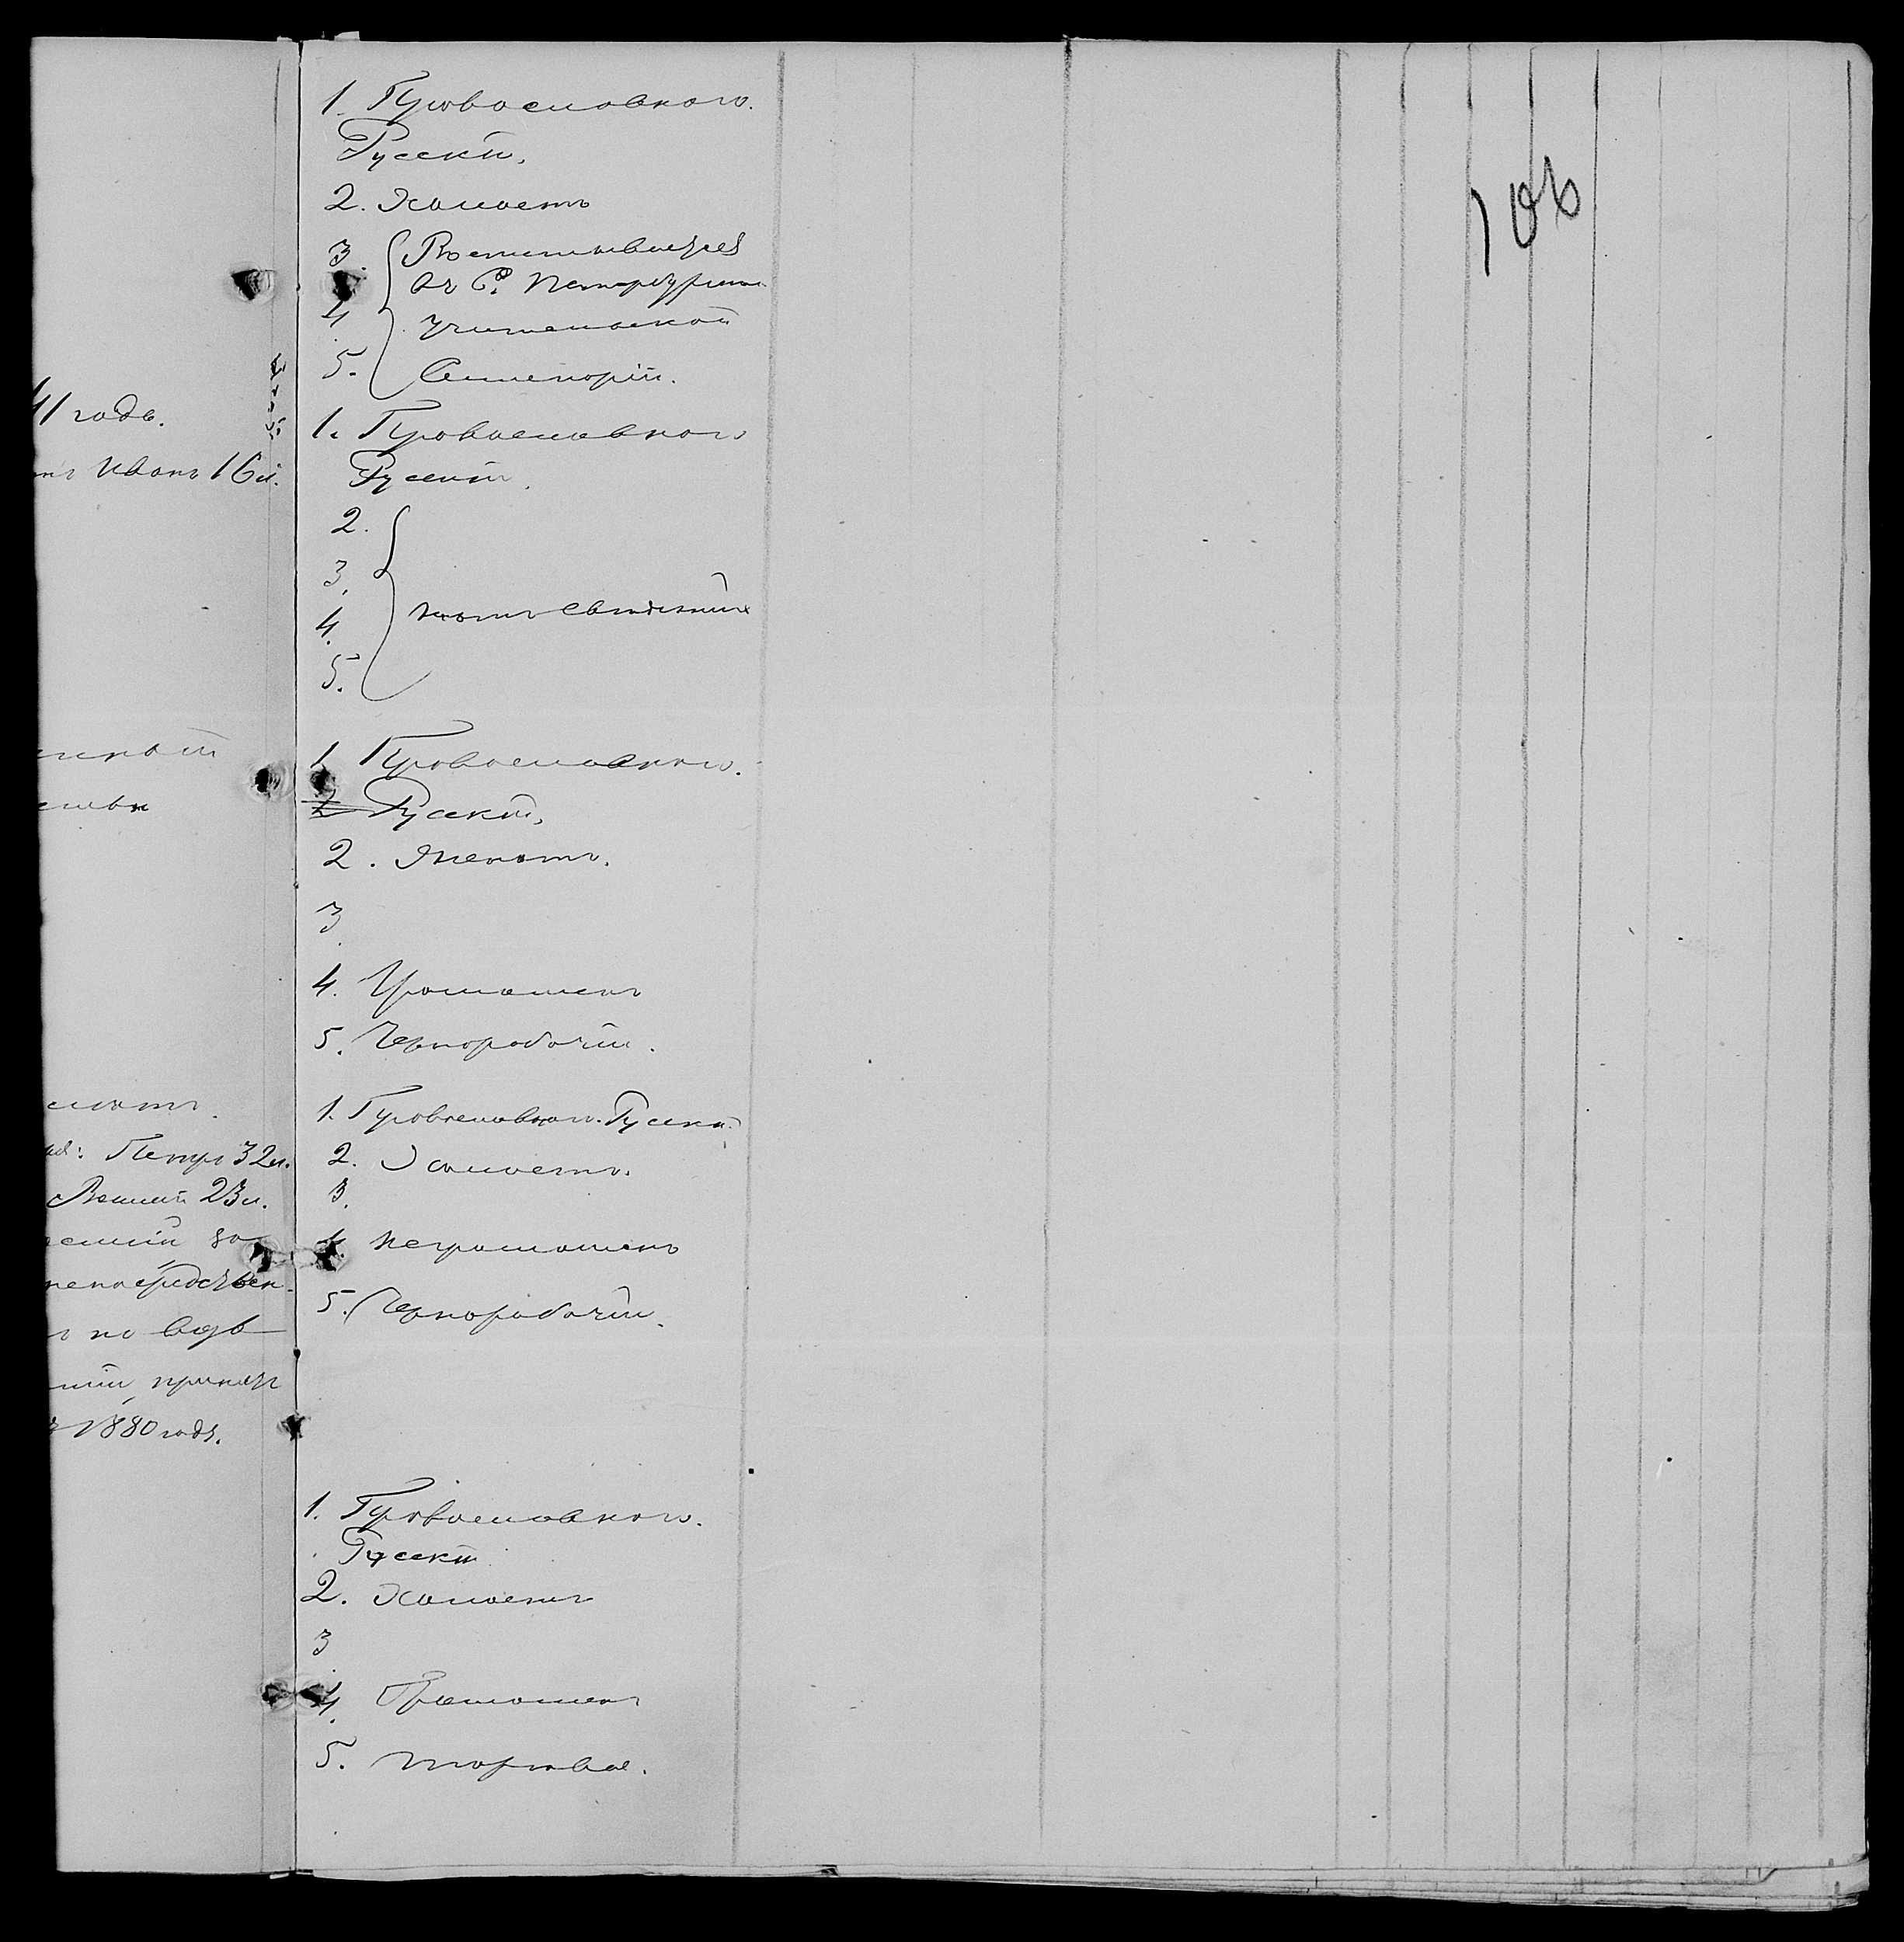 106
41 года.
Иванъ 16 л.
Петръ 32 л.
Василій 23 л.
непосредствен-
по вдов
1880 года.
1. Православнаго.
Русскій.
2. Холостъ
3. Воспитывается
въ С. Петербургск.
4. учительской
5. Семинаріи.
1. Православнаго
Русскій.
2.
3.
4. нетъ сведеній
5.
1 Православнаго.
2 Русскій.
2. Женатъ.
3
4. Грамотенъ
5. Чернорабочій.
1. Православнаго. Русскій.
2. Холостъ.
3.
4. неграмотенъ
5. Чернорабочій.
1. Православнаго.
Русскій
2. Холостъ
3
4. Грамотенъ
5.